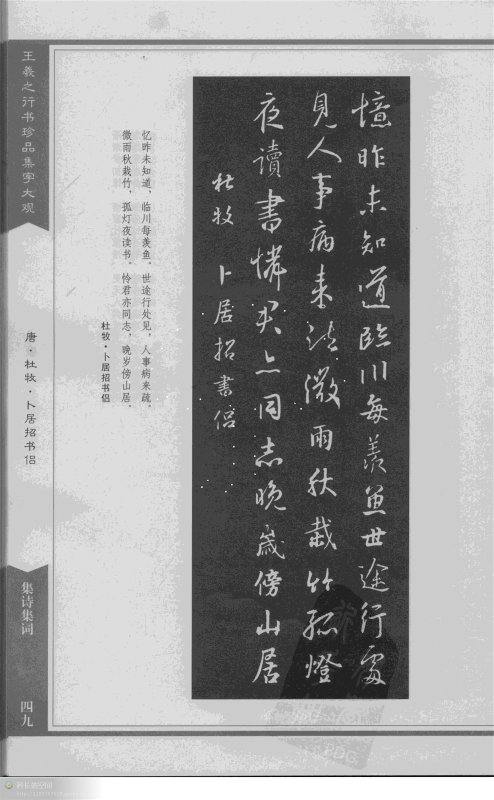 憶昨未知道臨川每羨魚世途行處
見人事病来疎微雨秋栽竹孤燈
夜讀書憐君亦同志晚歲傍山居
杜牧卜居招書侣
忆昨未知道，临川每羡鱼。世途行处见，人事病来疏。
微雨秋栽竹，孤灯夜读书。怜君亦同志，晚岁傍山居。
杜牧·卜居招书侣
王羲之行书珍品集字大观
唐·杜牧·卜居招书侣
集诗集词
四九